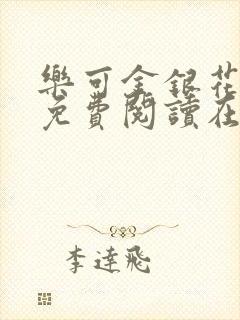 樂可金銀花
免費閱讀在
李達飛